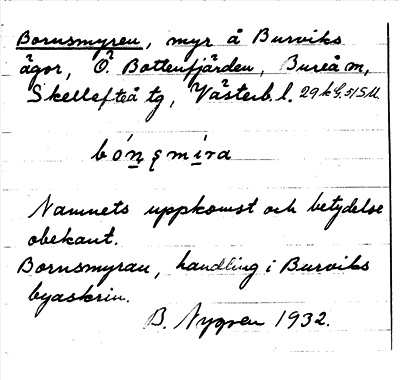 Bornsmyren, myr å Burviks
ägor, Ö. Bottenfjärden, Bureå m,
Skellefteå tg, Västerb. l.
bó́n̲s̨mi̲ra
Namnets uppkomst och betydelse
obekant.
Bornsmyran, handling i Burviks
byaskrin.
B. Nygren 1932.